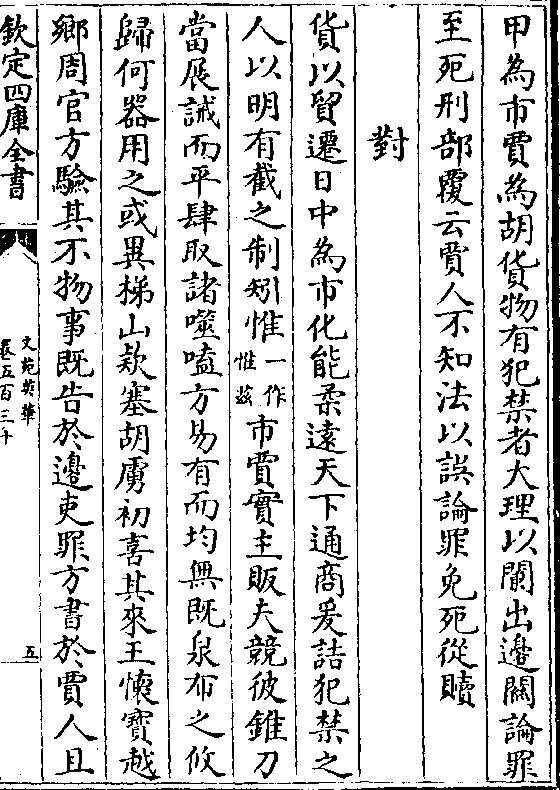 甲為市賈為胡貨物有犯禁者大理以闌出邊關論罪
至死刑部覆云賈人不知法以誤論罪免死從贖
對
貨以貿遷日中為市化能柔遠天下通商爰詰犯禁之
人以明有截之制矧惟一作惟茲市賈實主販夫競彼錐刀
當展誠而平肆取諸噬嗑方易有而均無既泉布之攸
歸何器用之或異梯山款塞胡虜初喜其來王懷寶越
鄉周官方驗其不物事既告於邊吏罪方書於賈人且
欽定四庫全書
文苑英華
卷五百三十
五